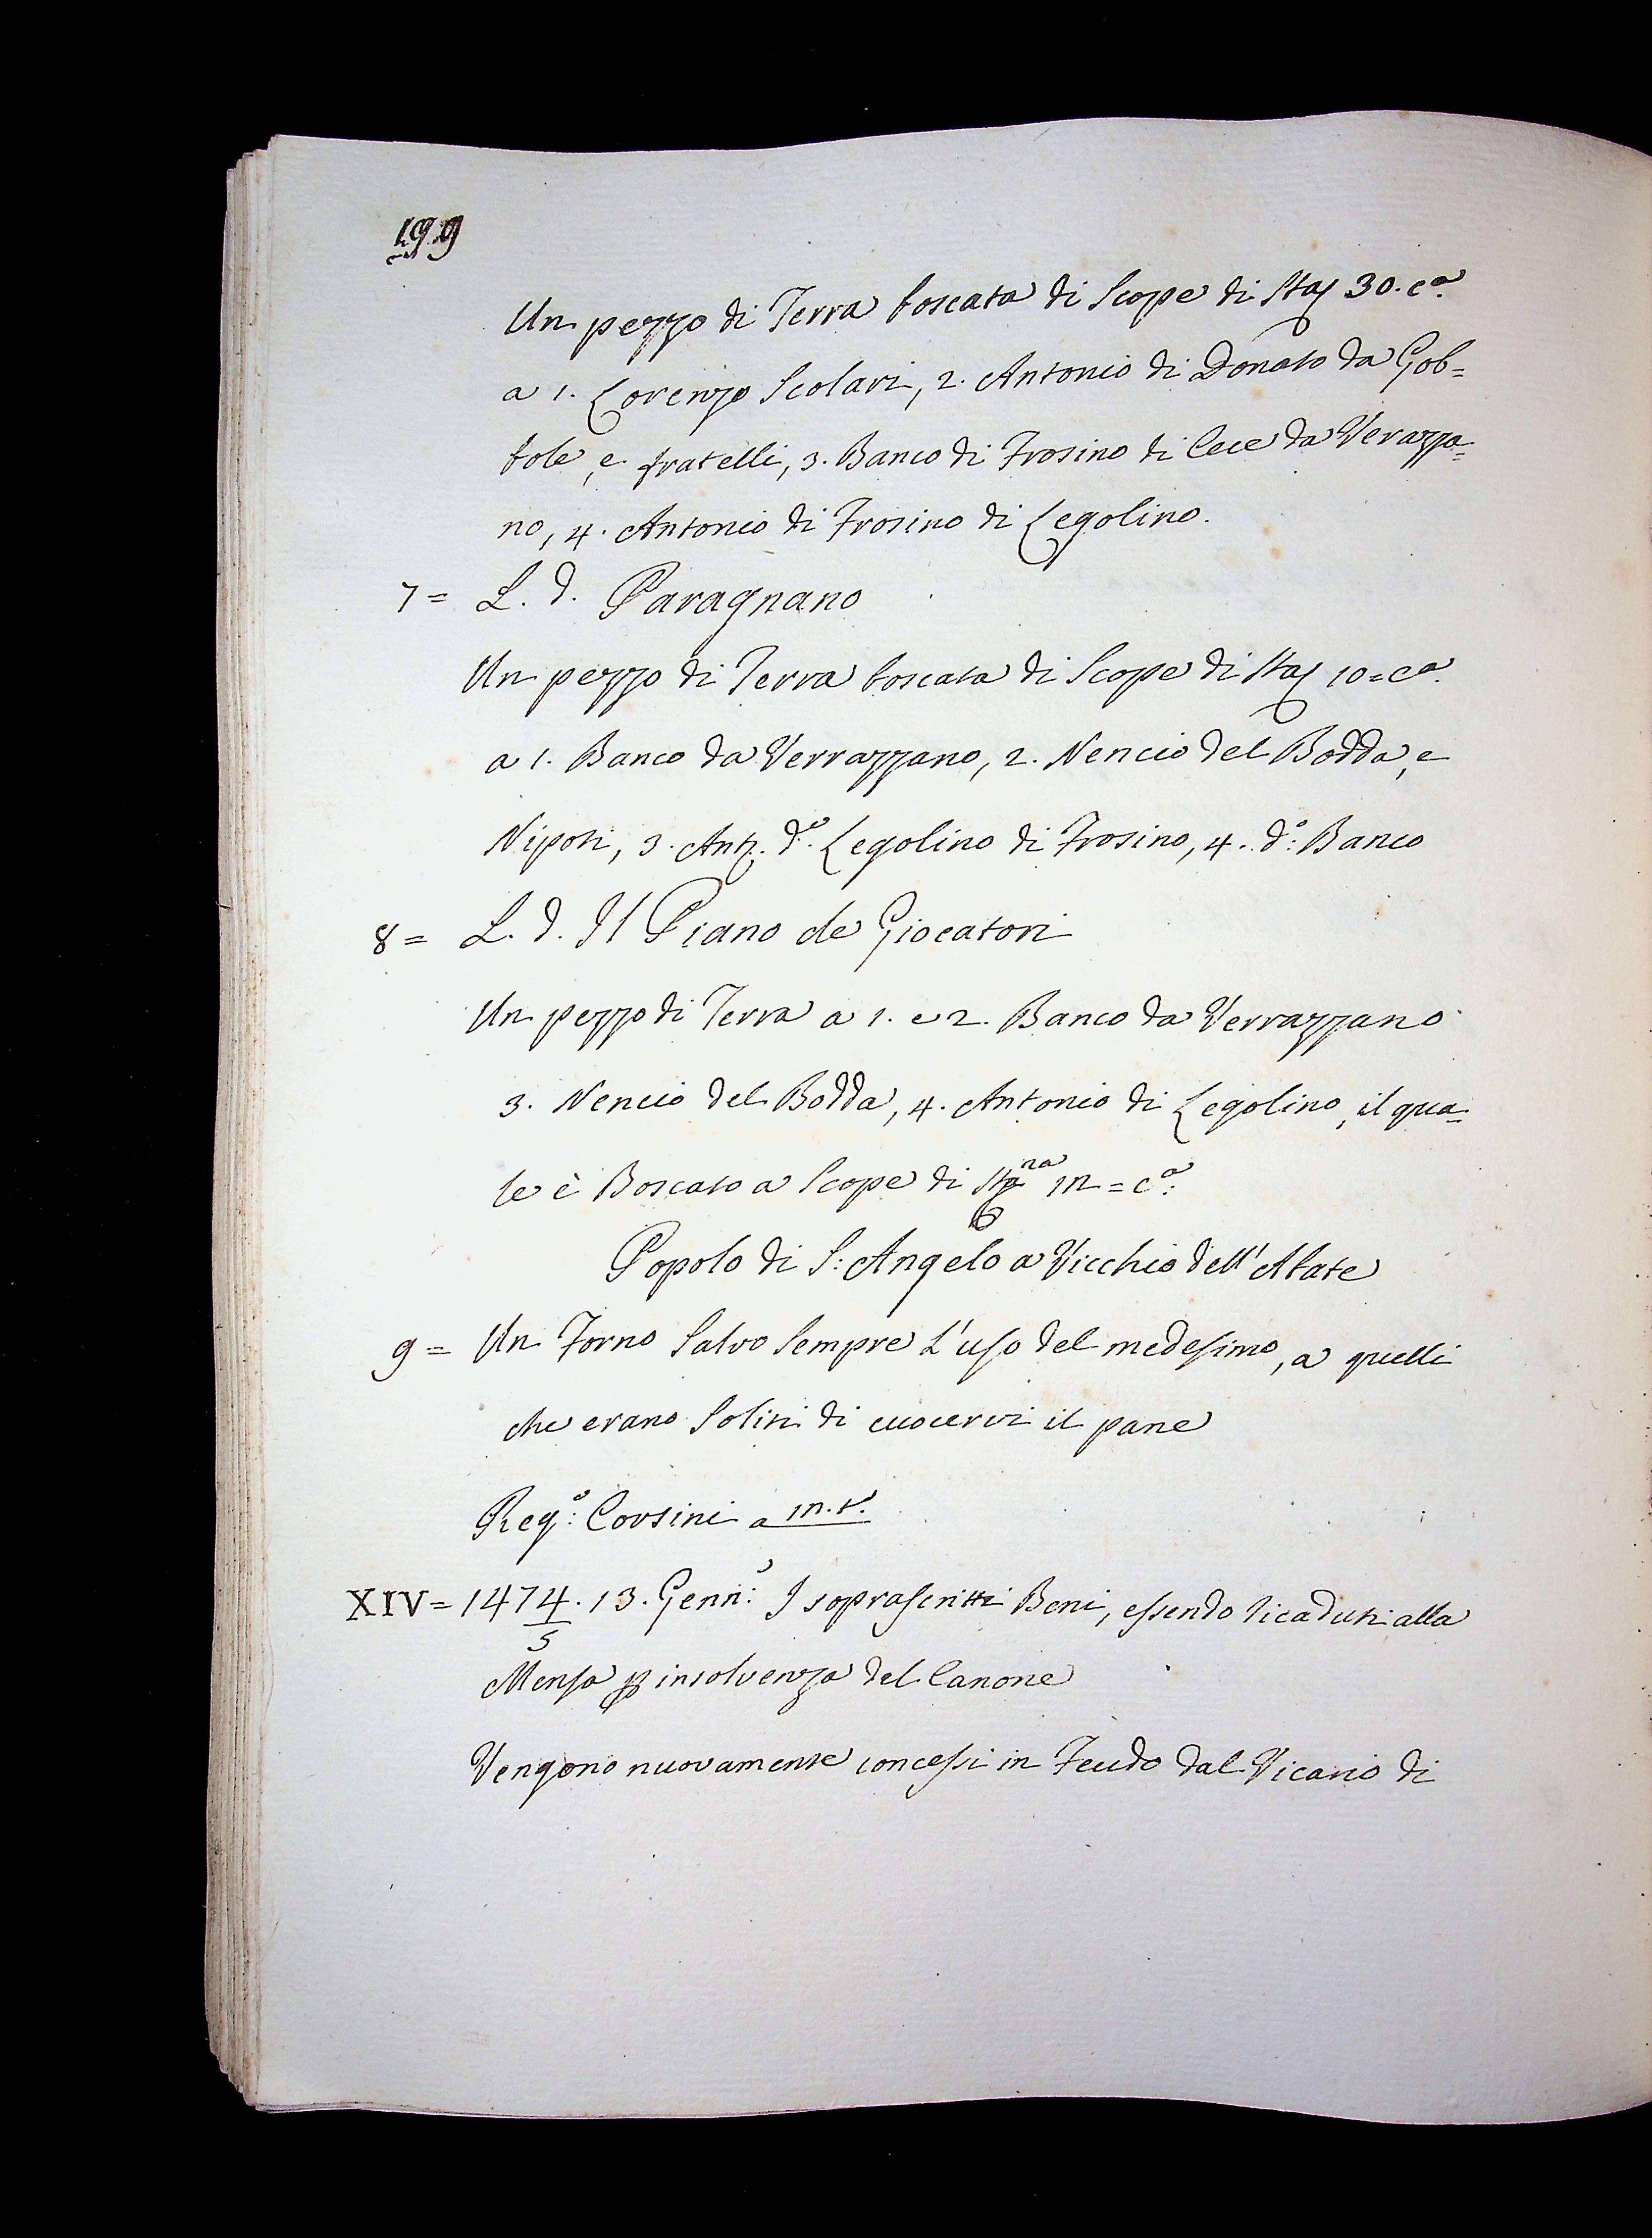 199
Un pezzo di Terra boscata di Scope di Staj 30. c.a
a 1. Lorenzo Scolari, 2. Antonio di Donato da Gob=
bole, e fratelli, 3. Banco di Frosino di Cece da Verazza=
no, 4. Antonio di Frosino di Legolino.
7 = L. d. Paragnano
Un pezzo di Terra boscata di Scope di Staj 10 = c.a
a 1. Banco da Verrazzano, 2. Nencio del Bodda, e
Nipoti, 3. Ant. d.o Legolino di Frosino, 4. d.o: Banco
8 = L. d. Il Piano de Giocatori
Un pezzo di Terra a 1. e 2. Banco da Verrazzano
3. Nencio del Bodda, 4. Antonio di Legolino, il qua=
le è Boscato a Scope di = c.a:
Popolo di S: Angelo a Vicchio dell' Abate
9 = Un Forno Salvo Sempre l'uso del medesimo, a quelli
che erano Soliti di cuocervi il pane
Reg.o: Corsini a m. t.o
XIV = 1474/5. 13. Genn.o: I soprascritti Beni, essendo ricaduti alla
Mensa p insolvenza del Canone
Vengono nuovamente concessi in Feudo dal Vicario di